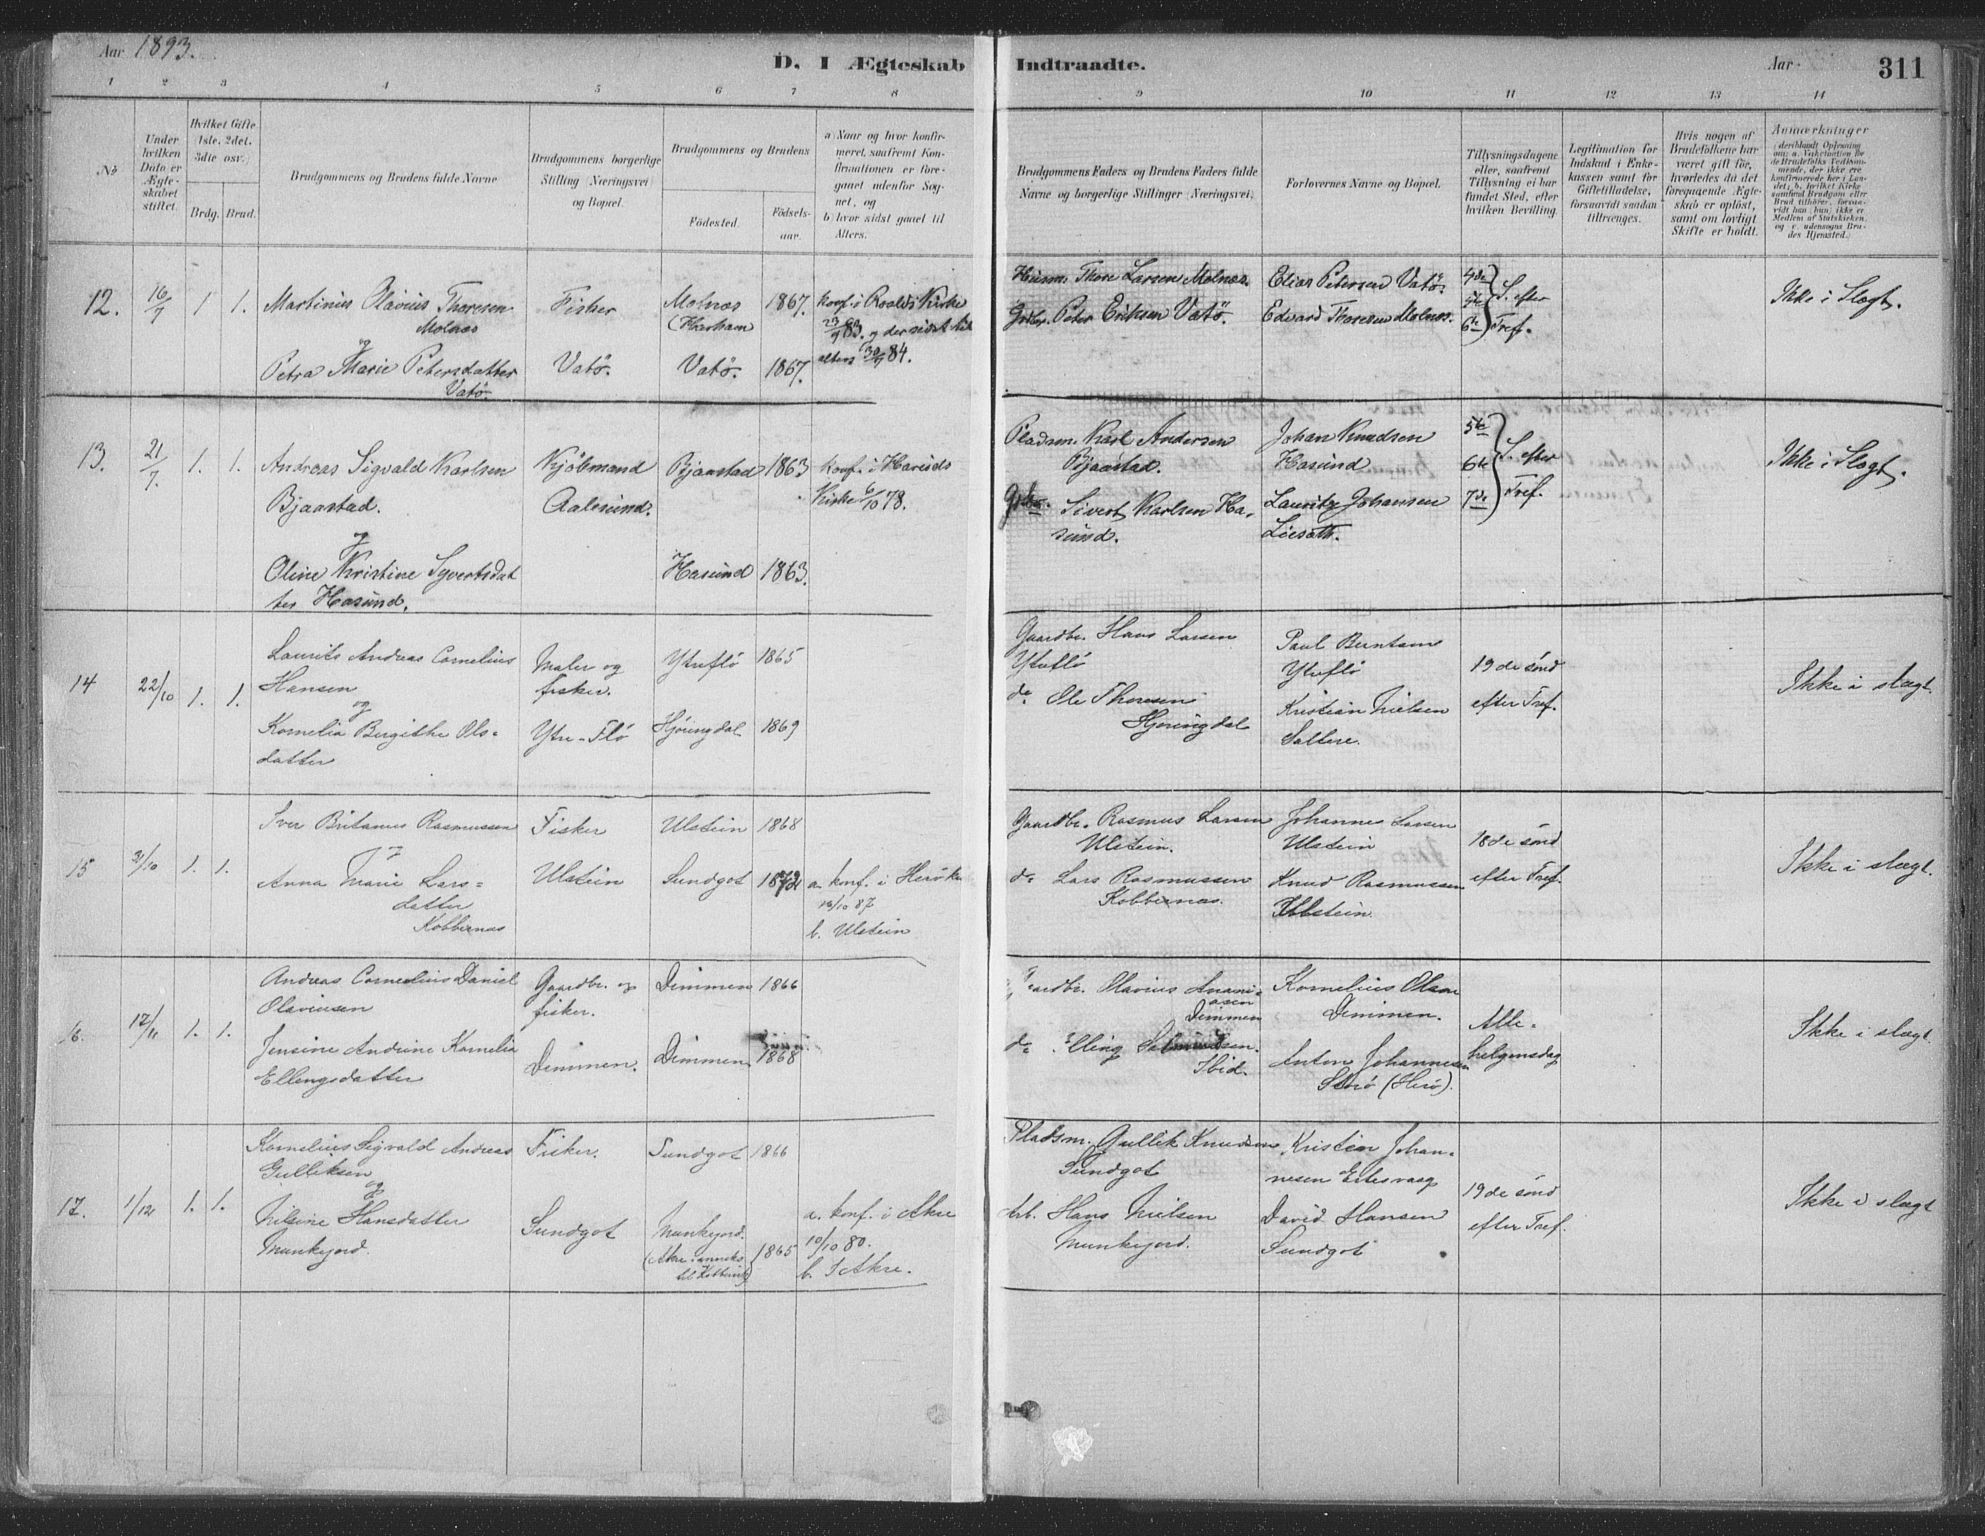 Aar 1893.
D. I Ægteskab Indtraadte.
Aar
311
1 2 3 4 5 6 7 8 9 10 11 12 13 14
No
Under hvilken Dato er Ægteskabet stiftet.
Hvilket Gifte (1ste, 2det, 3die osv.)
Brdg. Brud.
Brudgommens og Brudens fulde Navne
Brudgommens borgerlige Stilling (Næringsvei) og Bopæl.
Brudgommens og Brudens
Fødested.
Fødsels-aar.
a) Naar og hvor konfirmeret, saafremt Konfirmationen er foregaaet udenfor Sognet, og
b) hvor sidst gaaet til Alters.
Brudgommens Faders og Brudens Faders fulde Navne og borgerlige Stillinger (Næringsvei.)
Forlovernes Navne og Bopæl.
Tillysningsdagene eller, saafremt Tillysning ei har fundet Sted, efter hvilken Bevilling.
Legitimation for Indskud i Enkekassen samt for Giftetilladelse, forsaavidt saadan tiltrænges.
Hvis nogen af Brudefolkene har været gift før, hvorledes da det foregaaende Ægteskab er opløst, samt om lovligt Skifte er holdt.
Anmærkninger
12. 16/7 1 1. Martinius Olavius Thoresen Molnæs
og
Petra Marie Petersdatter Vatö.
Fisker
Vatö.
Molnæs (Harham 1867.
Vatö. 1867.
Konf. i Roalds Kirke
23/9 83. og der sidst til
alters 30/9 84.
Thore Larsen Molnæs.
Peter Eriksen Vatö.
Elias Petersen Vatö.
Edvard Thoresen Molnæs.
4de
5te
6te
S. efter Tref.
Ikke i Slegt.
13. 21/7. 1. 1. Andreas Sigvald Karlsen
Bjaastad.
og
Oline Kristine Syvertsdat
ter Hasund.
Kjöbmand
Aalesund.
Bjaastad 1863
Hasund 1863.
Konf. i Hareids
Kirke 6/10 78.
Pladsm. Karl Andersen
Bjaastad.
Sivert Karlsen Ha-
sund.
Johan Knudsen
Hasund
Lauritz Johansen
6te
7de
S. efter
Tref.
Ikke i Slegt.
14 22/10 1. 1. Laurits Andreas Cornelius
Hansen
og
Kornelia Bergithe Ols-
datter
Maler og
fisker.
Ytre-Flö
Ytreflö 1865
Hjörungdal 1869
Gaardbr. Hans Larsen
Ytreflö
do Ole Thoresen
Hjörungdal
Paul Berntsen
Ytreflö
Kristian Nielsen
19de sönd
efter Tref.
Ikke i slægt.
15 2/10 1. 1. Iver Britanus Rasmussen
og
Anna Marie Lars-
datter
Kobbernæs
Fisker
Ulstein
Ulstein 1868
Sundgot
a. konf. i Herök
/10 87
b. Ulstein
Gaardbr. Rasmus Larsen
Ulstein.
do Lars Rasmussen
Kobbernæs.
Johannes Larsen
Ulstein
Knud Rasmussen
Ulstein.
18de sönd
efter Tref.
Ikke i slægt.
16. 12/11 1. 1. Andreas Cornelius Daniel
Olavinsen
Jensine Andrine Kornelia
Ellingsdatter
Gaardbr. og
fisker.
Dimmen.
Dimmen 1866
Dimmen 1868
Gaardbr. Olavius Anani-
asen
Dimmen
do Elling
Ibid.
Kornelius Olsen
Dimmen.
Anton Johannesen
(Herö).
Alle-
helgensdag
Ikke i slægt
17. 1/12 1. 1. Kornelius Sigvald Andreas
Gulliksen
og
Nilsine Hansdatter
Munkejord.
Fisker.
Sundgot
Sundgot 1866
Munkejord.
1865
a. konf. i Akre
10/10 80.
b. I Akre.
Pladsm. Gullik Knudsen
Sundgot
Arb. Hans Nielsen
Munkejord.
Kristen Johan-
nesen Eitesvaag
David Hansen
Sundgot
19de sönd
efter Tref.
Ikke i slægt